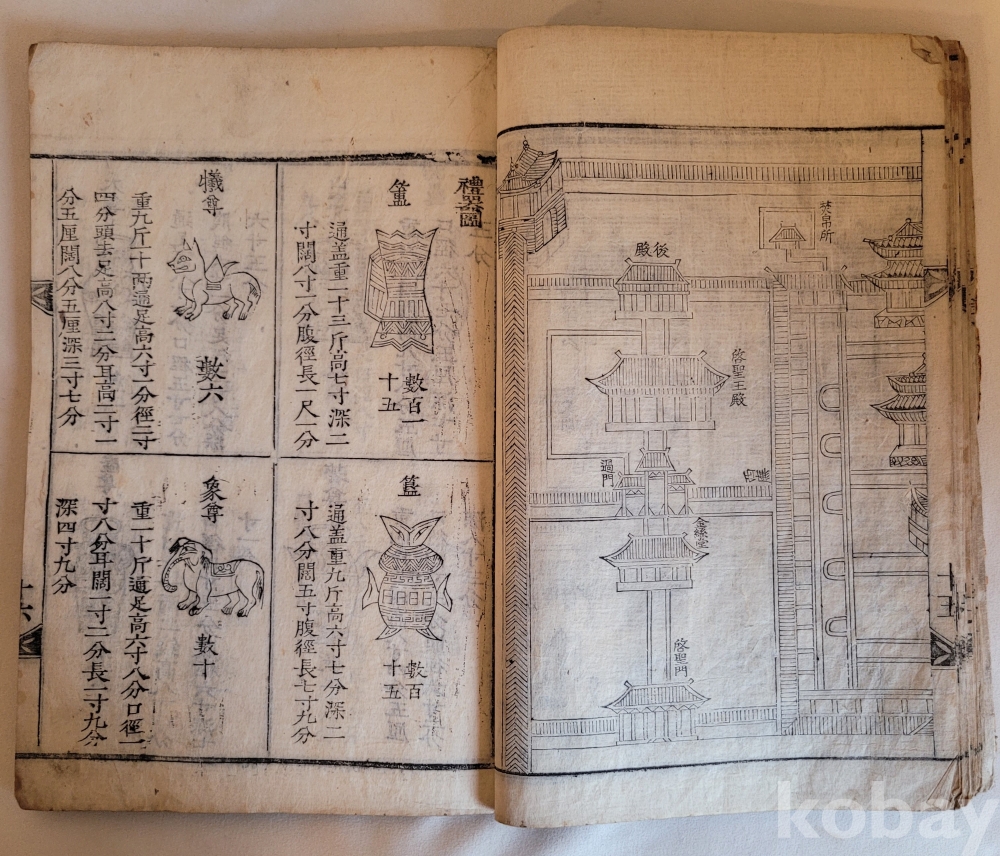 焚帛所
後殿
啓聖王殿
過門
金絲堂
啓聖門
禮器圖
簠
通盖重一十三斤高七寸深二
寸闊八寸一分腹徑長一尺一分
數百一
十五
簋
通盖重九斤高六寸七分深二
寸八分闊五寸腹徑長七寸九分
數百
十五
犧尊
重九斤一十兩通足高六寸一分徑二寸
四分頭去足高八寸二分耳高二寸一
分五厘闊八分五厘深三寸七分
數六
象尊
重一十斤通足高六寸八分口徑一
寸八分耳闊一寸二分長一寸九分
深四寸九分
數十
十六
kobay